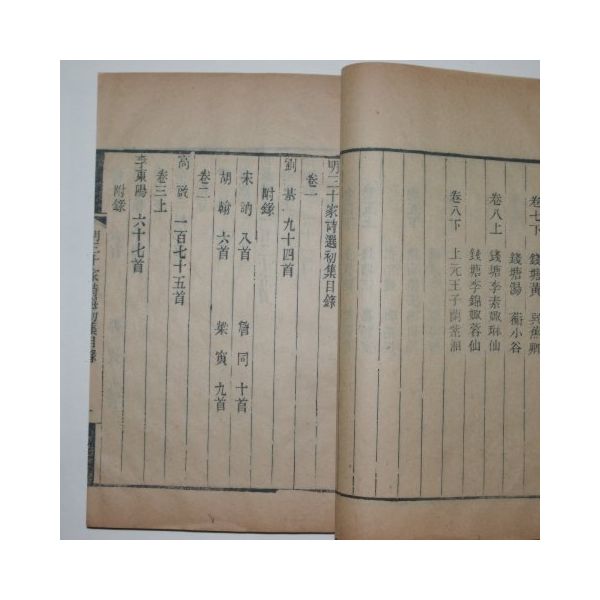 卷七下
錢塘黃 巽蕉卿
錢塘湯 蘅小谷
卷八上
錢塘李素娵琳仙
錢塘李錦娵蓉仙
卷八下
上元王子蘭紫湘
明三十家詩選初集目錄
卷一
劉基 九十四首
附錄
宋訥 八首 詹同 十首
胡翰 六首 梁寅 九首
卷二
高啟 一百七十五首
卷三上
李東陽 六十七首
附錄
明三十家詩選初集目錄